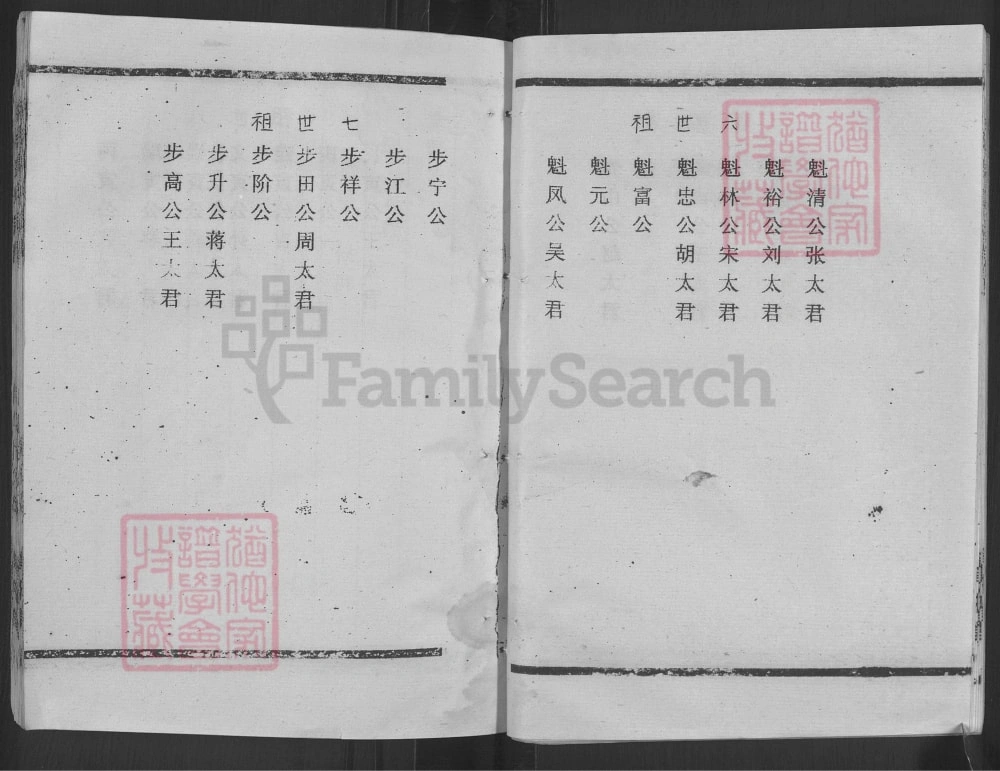 六世祖
魁清公张太君
魁裕公刘太君
魁林公宋太君
魁忠公胡太君
魁富公
魁元公
魁凤公吴太君
七世祖
步宁公
步江公
步祥公
步田公周太君
步阶公
步升公蒋太君
步高公王太君
FamilySearch